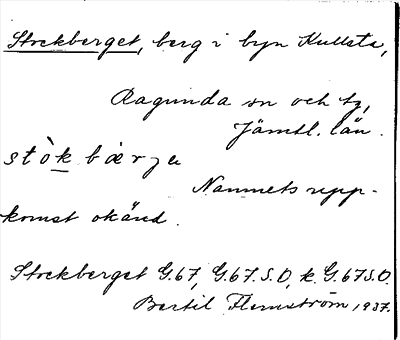 Stockberget, berg i byn Kullsta,
Ragunda sn och tg,
Jämtl. län.
stòk bær ja
Namnets upp-
komst okänd.
Stockberget G.67, G.67.S.O, k. G.67S.O.
Bertil Flemström, 1937.